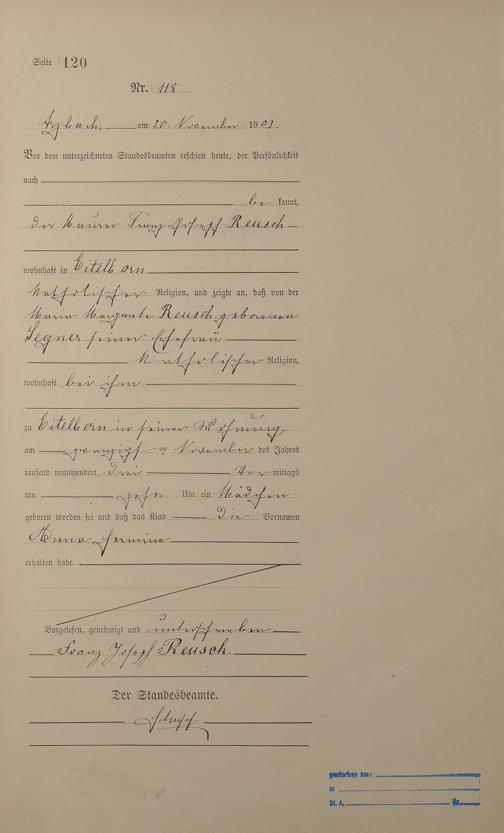 Seite 120
Nr. 118
Arzbach am 20. November 1903.
Vor dem unterzeichneten Standesbeamten erschien heute, der Persönlichkeit
nach
be kannt,
der Maurer Franz Josef Reusch
wohnhaft in Eitelborn
katholischer Religion, und zeigte an, daß von der
Maria Margarete Reusch geborenen
Segner seiner Ehefrau
katholischer Religion,
wohnhaft bei ihm
zu Eitelborn in seiner Wohnung
am November des Jahres
tausend neunhundert drei Vor mittags
um zehn Uhr ein Mädchen
geboren worden sei und daß das Kind die Vornamen
Anna Hermine
erhalten habe.
Vorgelesen, genehmigt und unterschrieben
Franz Josef Reusch.
Der Standesbeamte.
gestorben am:
in
St. A. Nr.